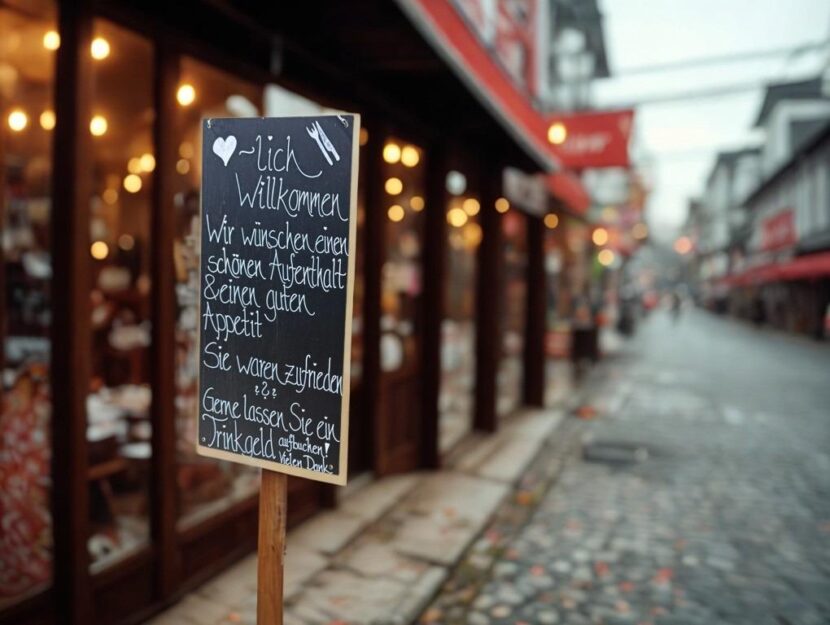 ♥~lich
Willkommen
Wir wünschen einen
schönen Aufenthalt
& einen guten
Appetit
Sie waren zufrieden
???
Gerne lassen Sie ein
Trinkgeld aufbuchen!
Vielen Dank